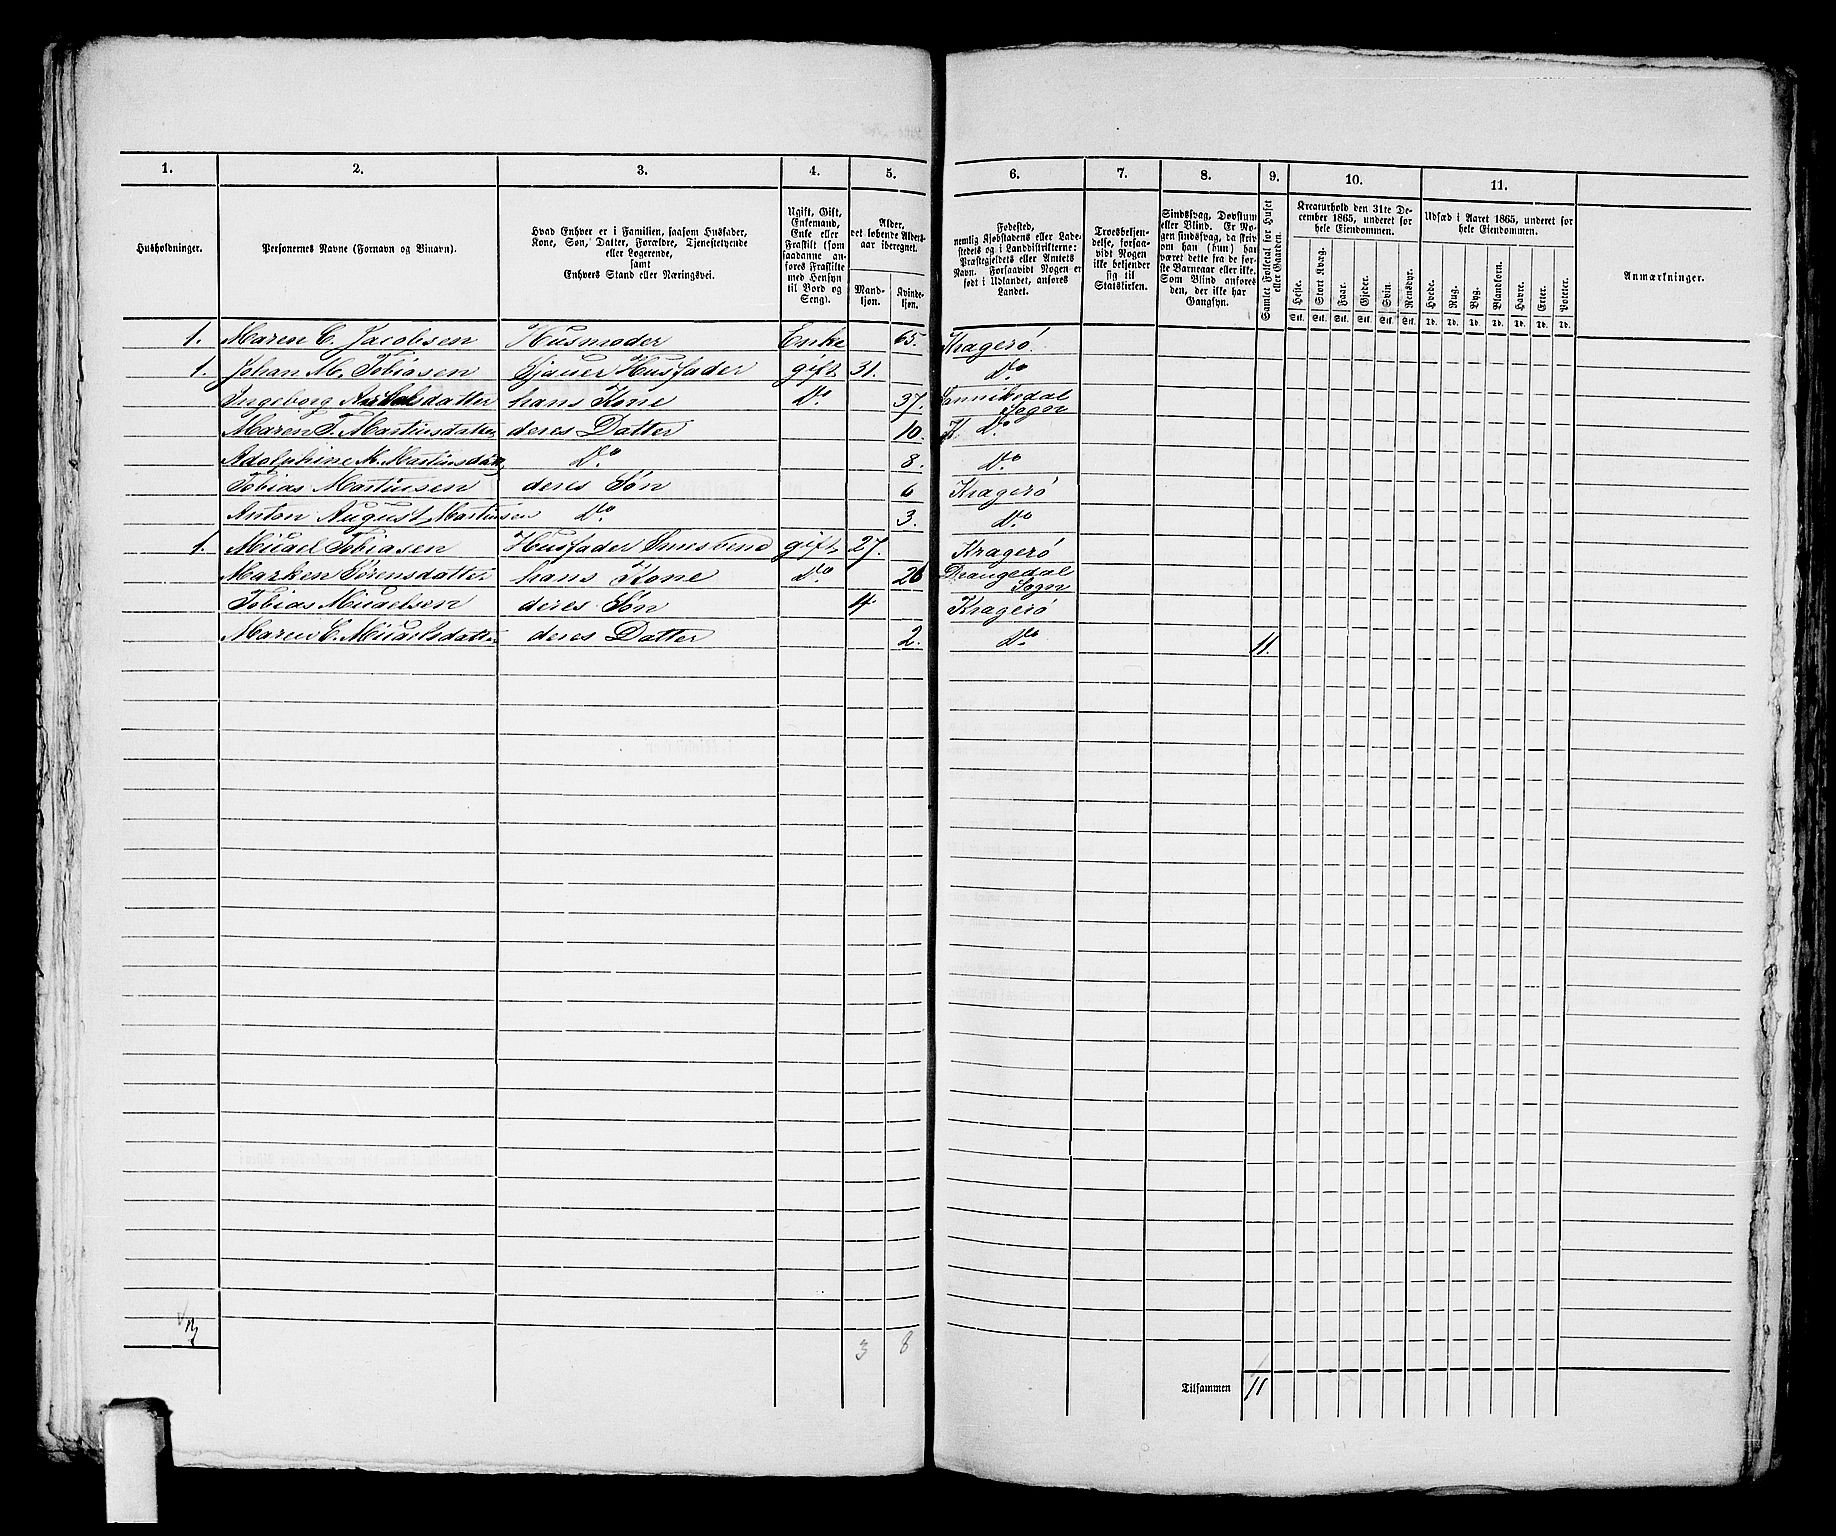 1. 2. 3. 4. 5. 6. 7. 8. 9. 10. 11.
Husholdninger.
Personernes Navne (Fornavn og Binavn).
Hvad Enhver er i Familien, saasom Husfader,
Kone, Søn, Datter, Forældre, Tjenestetyende
eller Logerende,
samt
Enhvers Stand eller Næringsvei.
Ugift, Gift,
Enkemand,
Enke eller
Fraskilt (som
saadanne an-
føres Fraskilte
med Hensyn
til Bord og
Seng).
Alder,
det løbende Alders-
aar iberegnet.
Mand-
kjøn.
Kvinde-
kjøn.
Fødested,
nemlig Kjøbstadens eller Lade-
stedets og i Landdistrikterne:
Præstegjeldets eller Amtets
Navn. Forsaavidt Nogen er
født i Udlandet, anføres
Landet.
Troesbekjen-
delse, forsaa-
vidt Nogen
ikke bekjender
sig til
Statskirken.
Sindssvag, Døvstum
eller Blind. Er No-
gen sindssvag, da skri-
ves om han (hun) har
været dette fra de før-
ste Barneaar eller ikke.
Som Blind anføres
den, der ikke har
Gangsyn.
Samlet Folketal for Huset
eller Gaarden.
Kreaturhold den 31te De-
cember 1865, underet for
hele Eiendommen.
Heste. Stort Kvæg. Faar. Gjeder. Svin. Rensdyr.
Stk. Stk. Stk. Stk. Stk. Stk.
Udsæd i Aaret 1865, underet for
hele Eiendommen.
Hvede. Rug. Byg. Blandkorn. Havre. Erter. Poteter.
Td. Td. Td. Td. Td. Td. Td.
Anmærkninger.
1. Maren C. Jacobsen Husmoder Enke 65. Kragerø.
1. Johan M. Tobiasen Sjauer Husfader gift 31. Do
Ingeborg datter hans Kone Do 37. Sannikedal Sogn
Maren T. Martinsdatter deres Datter 10. K. Do
Adolphine M. Martinsdatt Do 8. Do
Tobias Martinsen deres Søn 6 Kragerø
Anton August Martinsen Do 3. Do
1. Micael Tobiasen Husfader gift 27. Kragerø
Marken Sørensdatter hans Kone Do 26 Drangedal Sogn
Tobias Micaelsen deres Søn 4. Kragerø
Maren C. Micaelsdatter deres Datter 2. Do 11.
3 8
Tilsammen 11